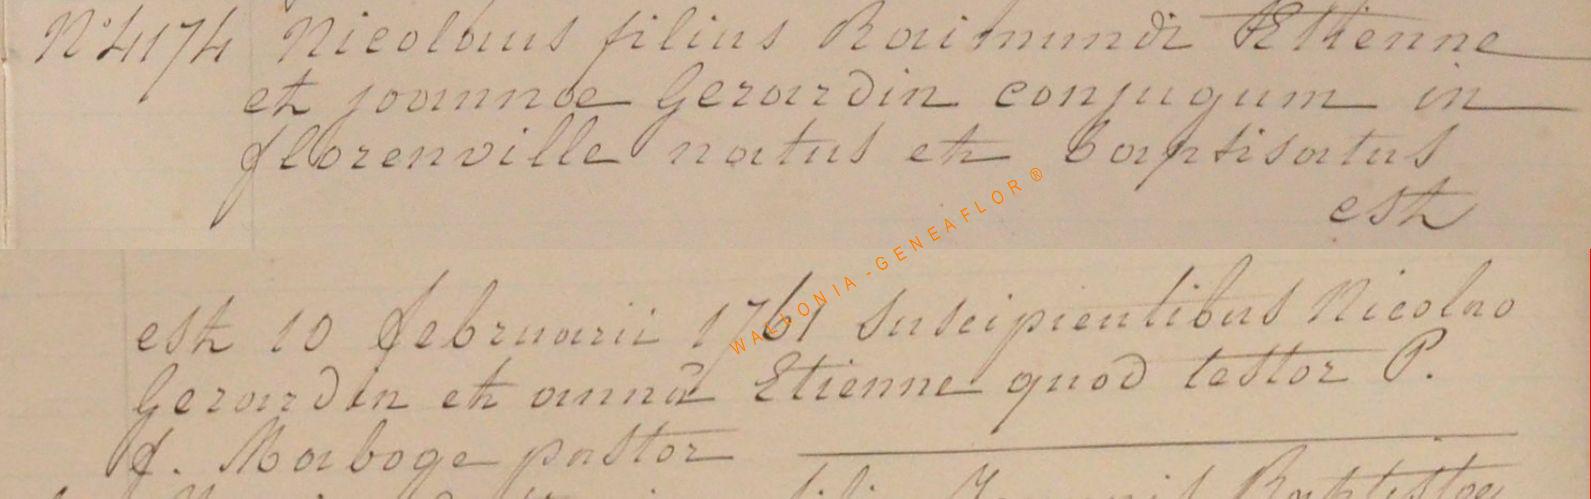 N° 4174 Nicolaus filius Raimundi Etienne
et joannae Gerardin conjugum in
florenville natus et baptisatus
est
est 10 februarii 1761 suscipientibus Nicolao
Gerardin et anna Etienne quod testor P.
f. Marboge pastor
WALLONIA-GENEAFLOR®
Joannis Baptistae